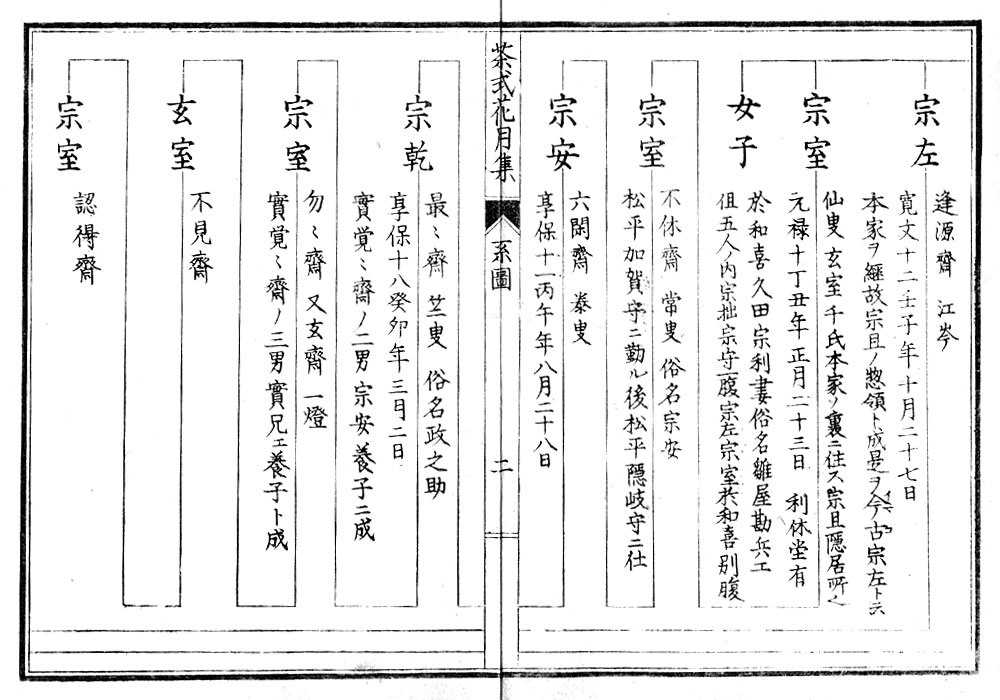 宗左
逢源齋　江岑
寛文十二壬子年十月二十七日
本家ヲ繼故宗旦ノ惣領ト成是ヲ今古宗左ト云
宗室
仙叟　玄室千氏本家ノ裏ニ住ス宗旦隱居所也
元禄十丁丑年正月二十三日　利休堂有
女子
於和喜久田宗利妻俗名雛屋勘兵エ
但五人ノ内宗拙宗守一腹宗左宗室於和喜別腹
宗室
不休齋　常叟　俗名宗安
松平加賀守ニ勤ル後松平隱岐守ニ仕
宗安
六閑齋　泰叟
享保十一丙午年八月二十八日
茶式花月集
系圖
二
宗乾
最〻齋　竺叟　俗名政之助
享保十八癸卯年三月二日
實覚〻齋ノ二男宗安養子ニ成
宗室
勿〻齋　又玄齋　一燈
實覚〻齋ノ三男實兄エ養子ト成
玄室
不見齋
宗室
認得齋